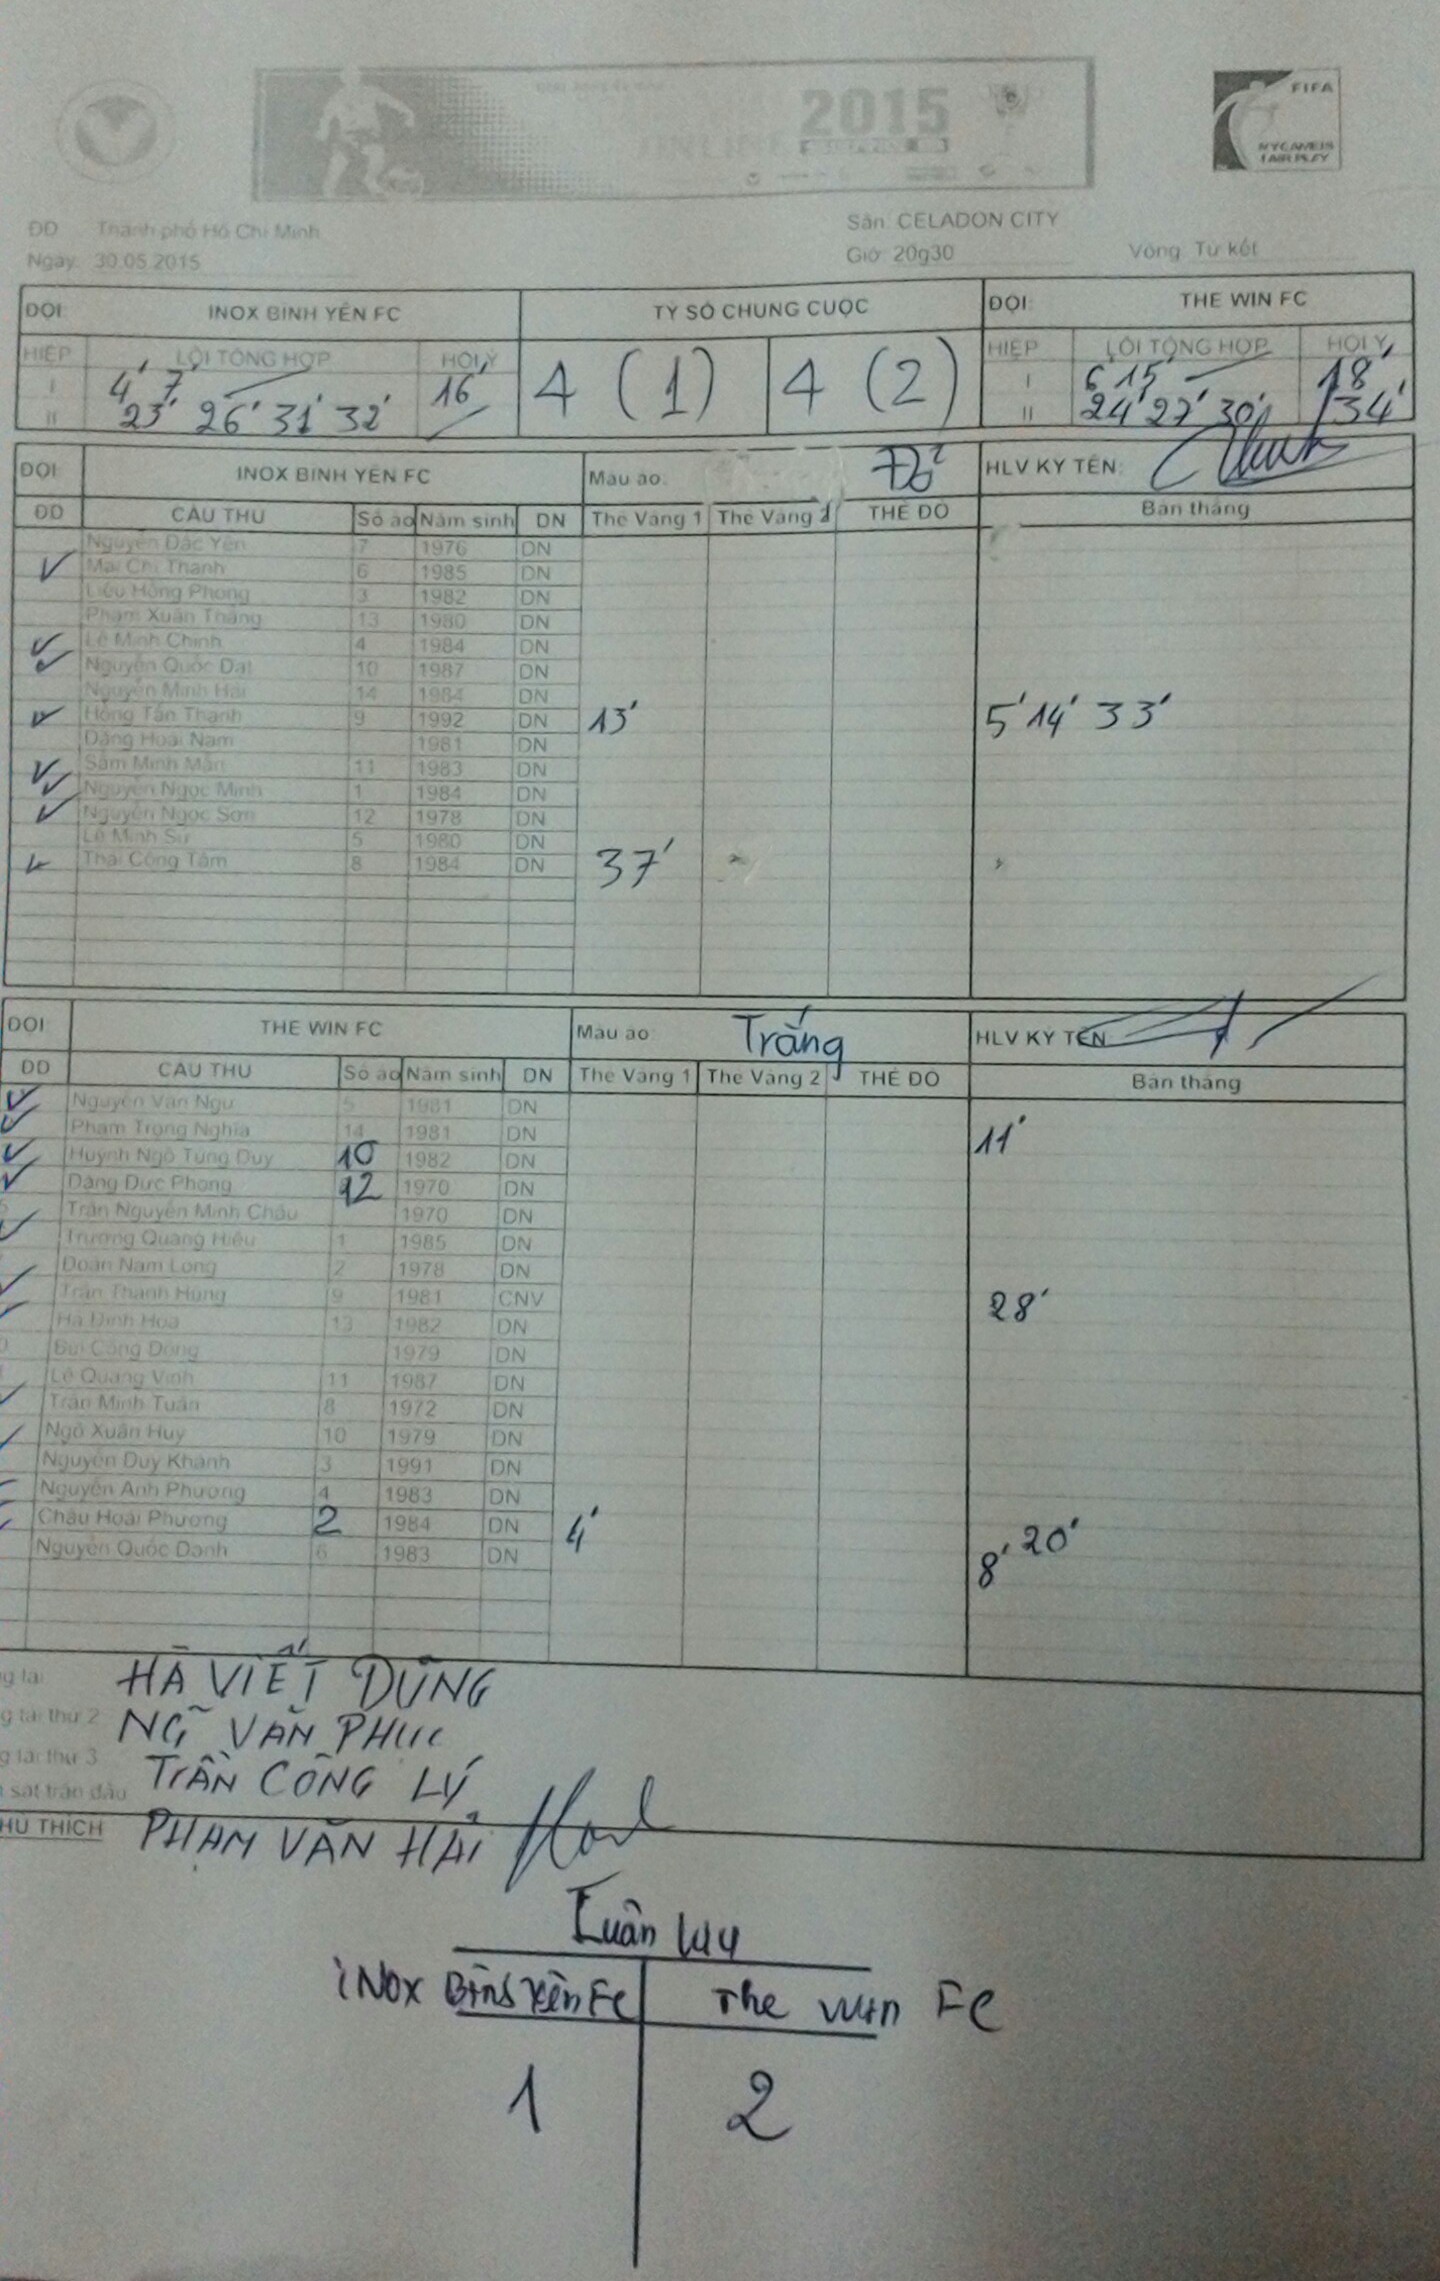 2015
FIFA
MY GAME IS
FAIR PLAY
ĐĐ Thành phố Hồ Chí Minh Sân: CELADON CITY
Ngày: 30.05.2015 Giờ: 20g30 Vòng: Tứ kết
ĐỘI: INOX BÌNH YÊN FC TỶ SỐ CHUNG CUỘC ĐỘI: THE WIN FC
HIỆP LỖI TỔNG HỢP HỘI Ý 4 (1) 4 (2) HIỆP LỖI TỔNG HỢP HỘI Ý
I 4' 7' 16' I 6' 15' 18'
II 23' 26' 31' 32' II 24' 27' 30' 34'
ĐỘI: INOX BÌNH YÊN FC Màu áo: Đỏ HLV KÝ TÊN:
ĐD CẦU THỦ Số áo Năm sinh DN Thẻ Vàng 1 Thẻ Vàng 2 THẺ ĐỎ Bàn thắng
Nguyễn Đắc Yên 7 1976 DN
Mai Chí Thanh 6 1985 DN
Liêu Hồng Phong 3 1982 DN
Phạm Xuân Thắng 13 1980 DN
Lê Minh Chính 4 1984 DN
Nguyễn Quốc Đạt 10 1987 DN
Nguyễn Minh Hải 14 1984 DN
Hồng Tấn Thanh 9 1992 DN 13' 5' 14' 33'
Đặng Hoài Nam 1981 DN
Sầm Minh Mẫn 11 1983 DN
Nguyễn Ngọc Minh 1 1984 DN
Nguyễn Ngọc Sơn 12 1978 DN
Lê Minh Sử 5 1980 DN
Thái Công Tâm 8 1984 DN 37'
ĐỘI THE WIN FC Màu áo Trắng HLV KÝ TÊN
ĐD CẦU THỦ Số áo Năm sinh DN Thẻ Vàng 1 Thẻ Vàng 2 THẺ ĐỎ Bàn thắng
Nguyễn Văn Ngự 5 1981 DN
Phạm Trọng Nghĩa 14 1981 DN 11'
Huỳnh Ngô Tùng Duy 10 1982 DN
Đặng Đức Phong 12 1970 DN
Trần Nguyễn Minh Châu 1970 DN
Trương Quang Hiếu 1 1985 DN
Đoàn Nam Long 2 1978 DN
Trần Thanh Hùng 9 1981 CNV 28'
Hà Đình Hoà 13 1982 DN
Bùi Công Đông 1979 DN
Lê Quang Vinh 11 1987 DN
Trần Minh Tuấn 8 1972 DN
Ngô Xuân Huy 10 1979 DN
Nguyễn Duy Khánh 3 1991 DN
Nguyễn Anh Phương 4 1983 DN
Châu Hoài Phương 2 1984 DN 4' 8' 20'
Nguyễn Quốc Danh 6 1983 DN
g tài HÀ VIẾT DŨNG
g tài thứ 2 NG~ VĂN PHÚC
g tài thứ 3 TRẦN CÔNG LÝ
sát trận đấu PHẠM VĂN HẢI
HÚ THÍCH
Luân lưu
iNOX Bình Yên Fc The win Fc
1 2